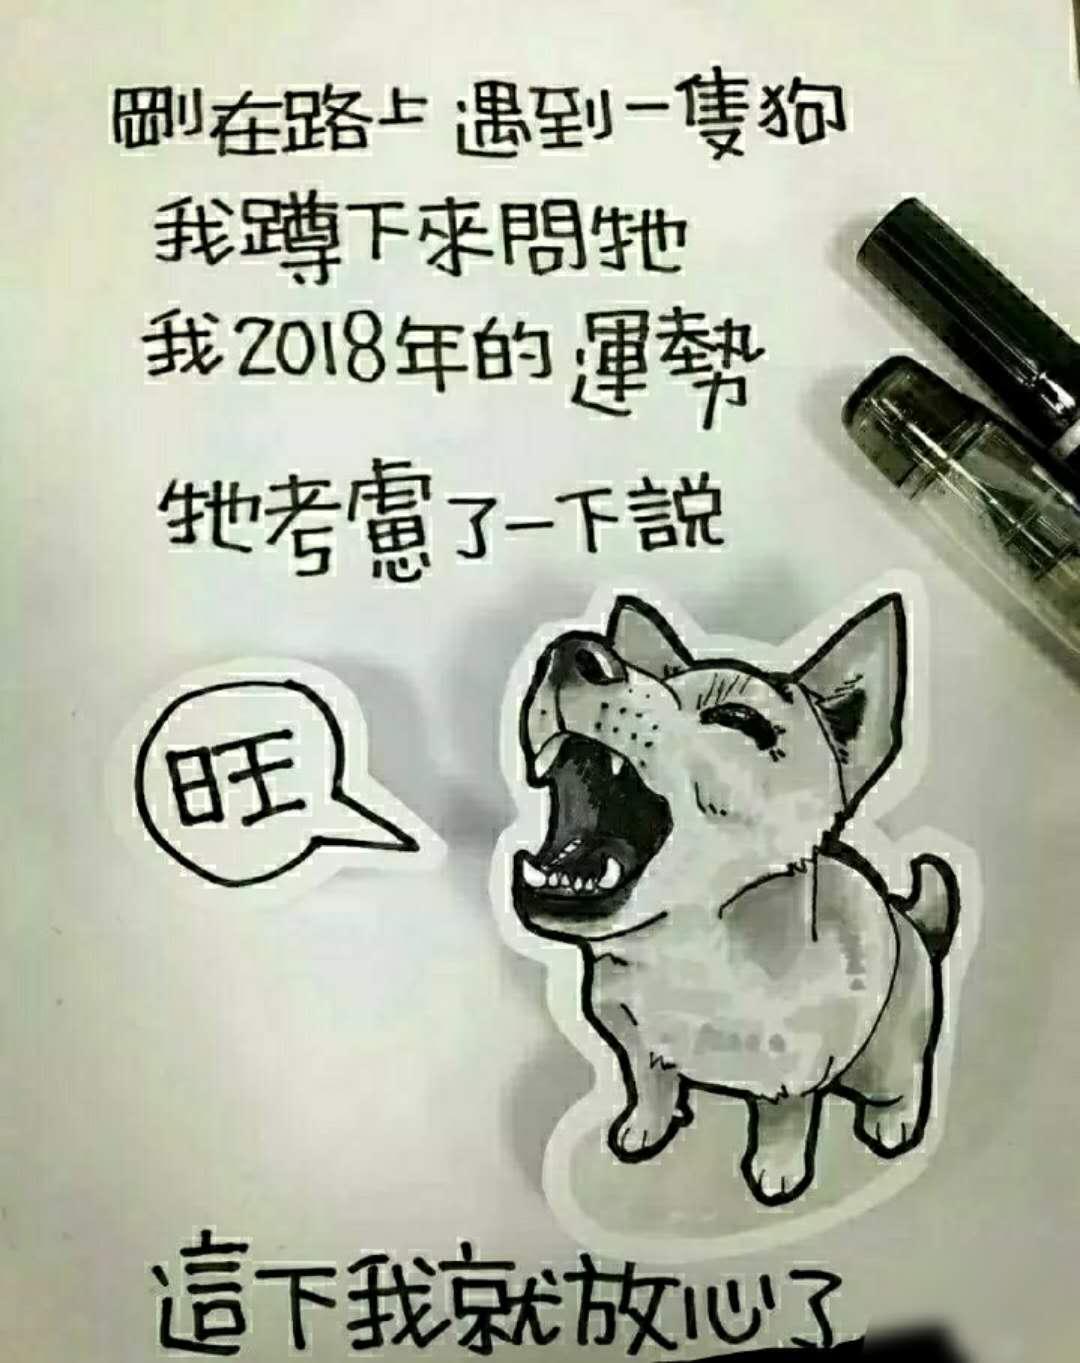 剛在路上遇到一隻狗
我蹲下來問牠
我2018年的運勢
牠考慮了一下說
旺
這下我就放心了